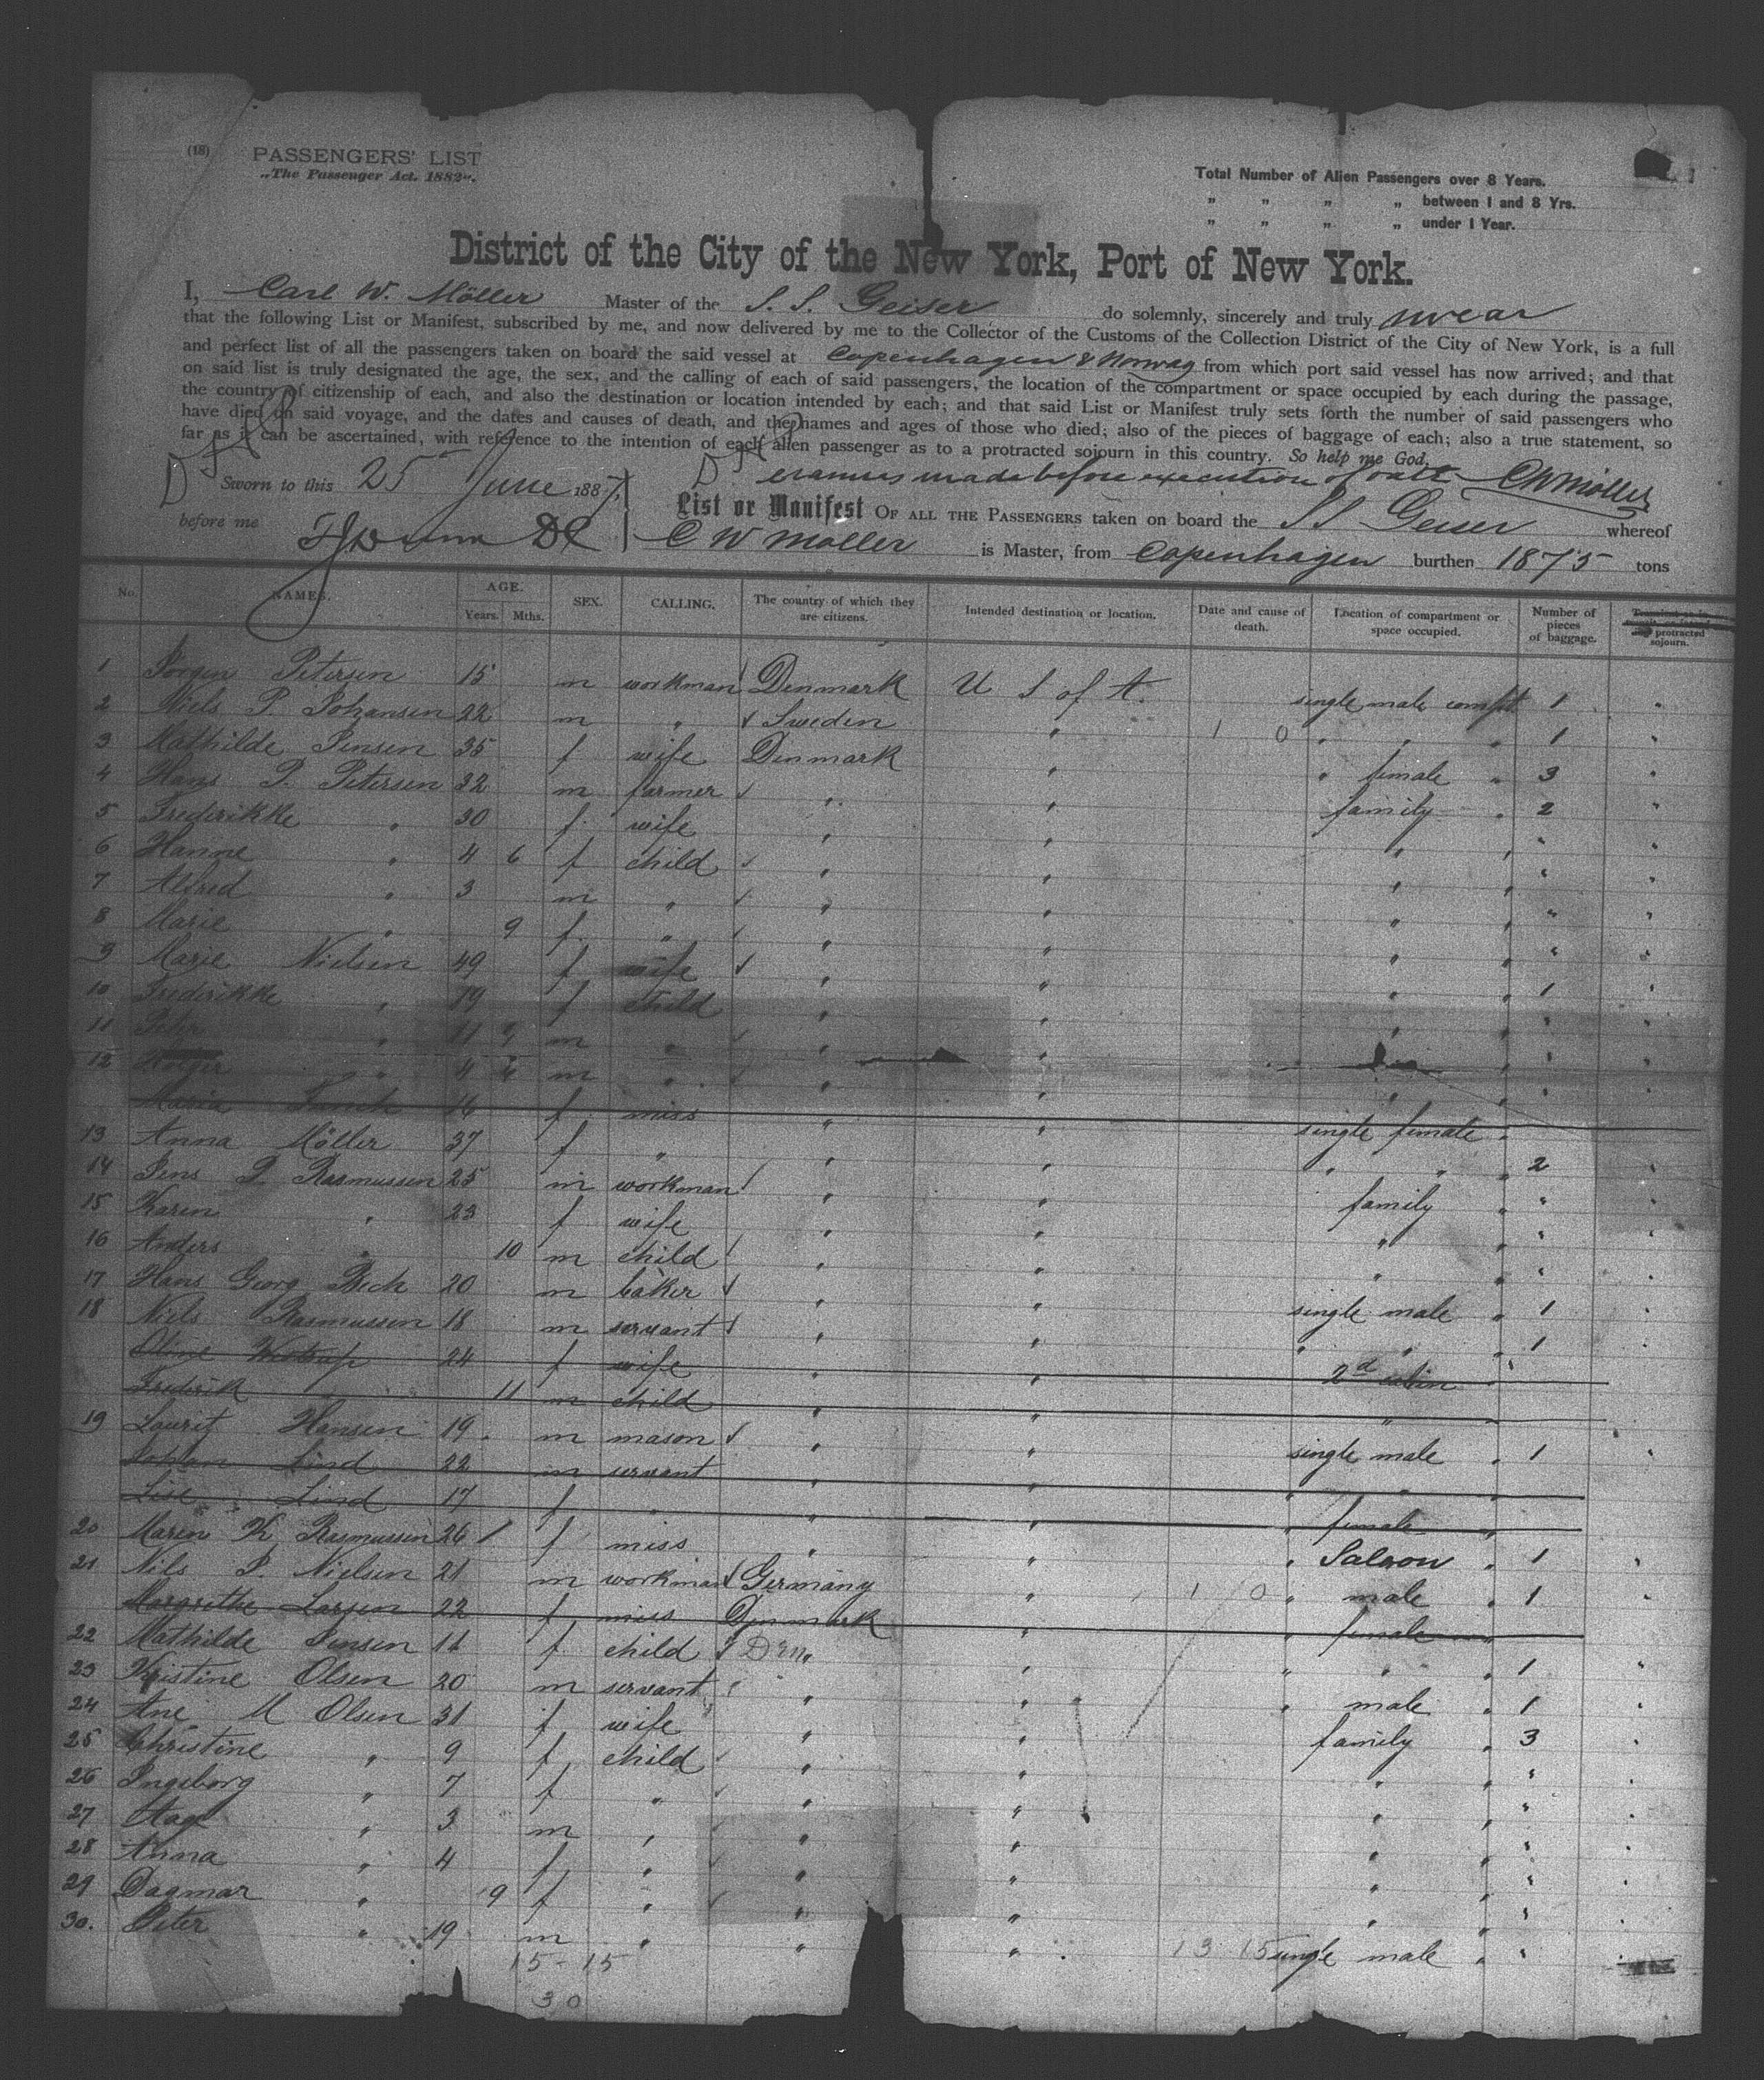 (18) PASSENGERS' LIST
„The Passenger Act. 1882“.
Total Number of Alien Passengers over 8 Years.
„ „ „ „ between 1 and 8 Yrs.
„ „ „ „ under 1 Year.
District of the City of the New York, Port of New York.
I, Carl W. Möller Master of the S. S. Geiser do solemnly, sincerely and truly swear
that the following List or Manifest, subscribed by me, and now delivered by me to the Collector of the Customs of the Collection District of the City of New York, is a full
and perfect list of all the passengers taken on board the said vessel at Copenhagen & Norway from which port said vessel has now arrived; and that
on said list is truly designated the age, the sex, and the calling of each of said passengers, the location of the compartment or space occupied by each during the passage,
the country of citizenship of each, and also the destination or location intended by each; and that said List or Manifest truly sets forth the number of said passengers who
have died on said voyage, and the dates and causes of death, and the names and ages of those who died; also of the pieces of baggage of each; also a true statement, so
far as it can be ascertained, with reference to the intention of each alien passenger as to a protracted sojourn in this country. So help me God.
erasures made before execution of oath CWMöller
Sworn to this 25 June 1887
before me
List or Manifest OF ALL THE PASSENGERS taken on board the SS Geiser whereof
C W Moller is Master, from Copenhagen burthen 1875 tons
No. NAMES. AGE. Years. Mths. SEX. CALLING. The country of which they are citizens. Intended destination or location. Date and cause of death. Location of compartment or space occupied. Number of pieces of baggage. protracted sojourn.
1 Jorgen Petersen 15 m workman Denmark U S of A. single male compt 1 "
2 Niels P. Johansen 22 m " Sweden " 1 0 " " " 1 "
3 Mathilde Jensen 35 f wife Denmark " " female " 3 "
4 Hans P. Petersen 32 m farmer " " family " 2 "
5 Frederikke " 30 f. wife " " " " " "
6 Hanne " 4 6 f child " " " " " "
7 Alfred " 3 m " " " " " " "
8 Marie " 9 f. " " " " " " "
9 Marie Nielsen 49 f wife " " " " 1 "
10 Frederikke " 19 f child " " " " " "
11 " 11 9 m " " " " " " "
12 Holger " 4 m " " " " " " "
Maria 16 f miss " " single female "
13 Anna Möller 37 f " " " " " " 2 "
14 Jens P. Rasmussen 25 m workman " " family " " "
15 Karen " 23 f wife " " " " " "
16 Anders " 10 m child " " " " " "
17 Hans Georg Beck 20 m baker " " single male " 1 "
18 Niels Rasmussen 18 m servant " " " " " 1 "
Oline 24 f wife " " 2d cabin "
Frederik 11 m child " " " "
19 Laurit Hansen 19. m mason " " single male " 1 "
Johan Lind 22 m servant " " " " "
Lise Lind 17 f " " " " female "
20 Maren K Rasmussen 26 f miss " " " Saloon " 1 "
21 Nils P. Nielsen 21 m workman Germany " 1 0 " male " 1 "
Margrethe Larsen 22 f miss Denmark " " female "
22 Mathilde Jensen 11 f. child Den " " " " 1 "
23 Kristine Olsen 20 m servant " " " male " 1 "
24 Ane M Olsen 31 f wife " " family " 3 "
25 Christine " 9 f child " " " " " "
26 Ingeborg " 7 f " " " " " " "
27 Aage " 3 m " " " " " " "
28 Anna " 4 f " " " " " " "
29 Dagmar " 9 f " " " " " " "
30. Peter " 19 m " " " 13 15 single male " "
15-15
30